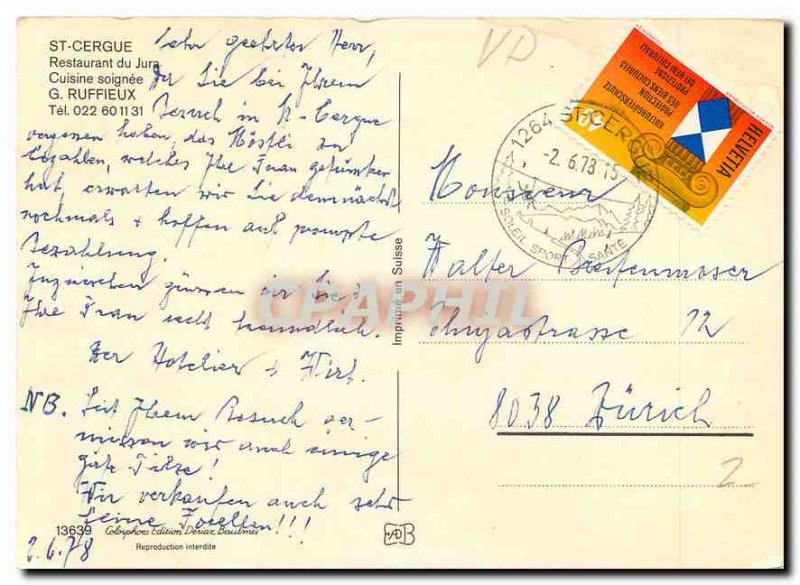 ST-CERGUE
Restaurant du Jura
Cuisine soignée
G. RUFFIEUX
Tél. 022 60 11 31
Sehr geehrter Herr,
Da Sie bei Ihrem
Besuch in St-Cergue
vergessen haben, das Höstli zu
bezahlen, welches Ihre Frau
hat, erwarten wir Sie demnächst
nochmals + hoffen auf prompte
Bezahlung.
Inzwischen grüssen wir Sie +
Ihre Frau recht freundlich.
Der Hotelier + Wirt.
NB. Seit Ihrem Besuch ver-
missen wir auch einige
gute Pilze!
Wir verkaufen auch sehr
feine Forellen!!!
13639 Colorphoto Edition Dériaz Baulmes
Reproduction interdite
2.6.78
Imprimé en Suisse
VD
1264 ST-CERGUE
-2.6.78 15
SOLEIL SPORT SANTE
HELVETIA
KULTURGÜTERSCHUTZ
PROTECTION
DES BIENS CULTURELS
PROTEZIONE
DEI BENI CULTURALI
40
Monsieur
Walter Breitenmoser
12
8038 Zürich
2
CPAPHIL